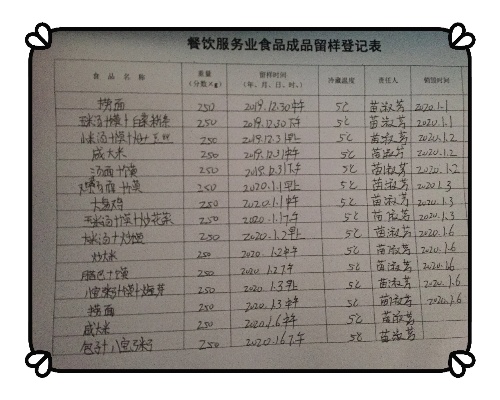 餐饮服务业食品成品留样登记表
食品名称 重量（分数×g） 留样时间（年、月、日、时、） 冷藏温度 责任人 销毁时间
捞面 250 2019.12.30中午 5℃ 苗淑芳 2020.1.1
250 2019.12.30下午 5℃ 苗淑芳 2020.1.1
250 2019.12.31早上 5℃ 苗淑芳 2020.1.2
咸大米 250 2019.12.31中午 5℃ 苗淑芳 2020.1.2
汤面 250 2019.12.31下午 5℃ 苗淑芳 2020.1.2
250 2020.1.1早上 5℃ 苗淑芳 2020.1.3
大盘鸡 250 2020.1.1中午 5℃ 苗淑芳 2020.1.3
玉米汤+馍+炒花菜 250 2020.1.1下午 5℃ 苗淑芳 2020.1.3
250 2020.1.2早上 5℃ 苗淑芳 2020.1.6
炒大米 250 2020.1.2中午 5℃ 苗淑芳 2020.1.6
250 2020.1.2下午 5℃ 苗淑芳 2020.1.6
250 2020.1.3早上 5℃ 苗淑芳 2020.1.6
捞面 250 2020.1.3中午 5℃ 苗淑芳 2020.1.6
咸大米 250 2020.1.6中午 5℃ 苗淑芳
包子+八宝粥 250 2020.1.6下午 5℃ 苗淑芳